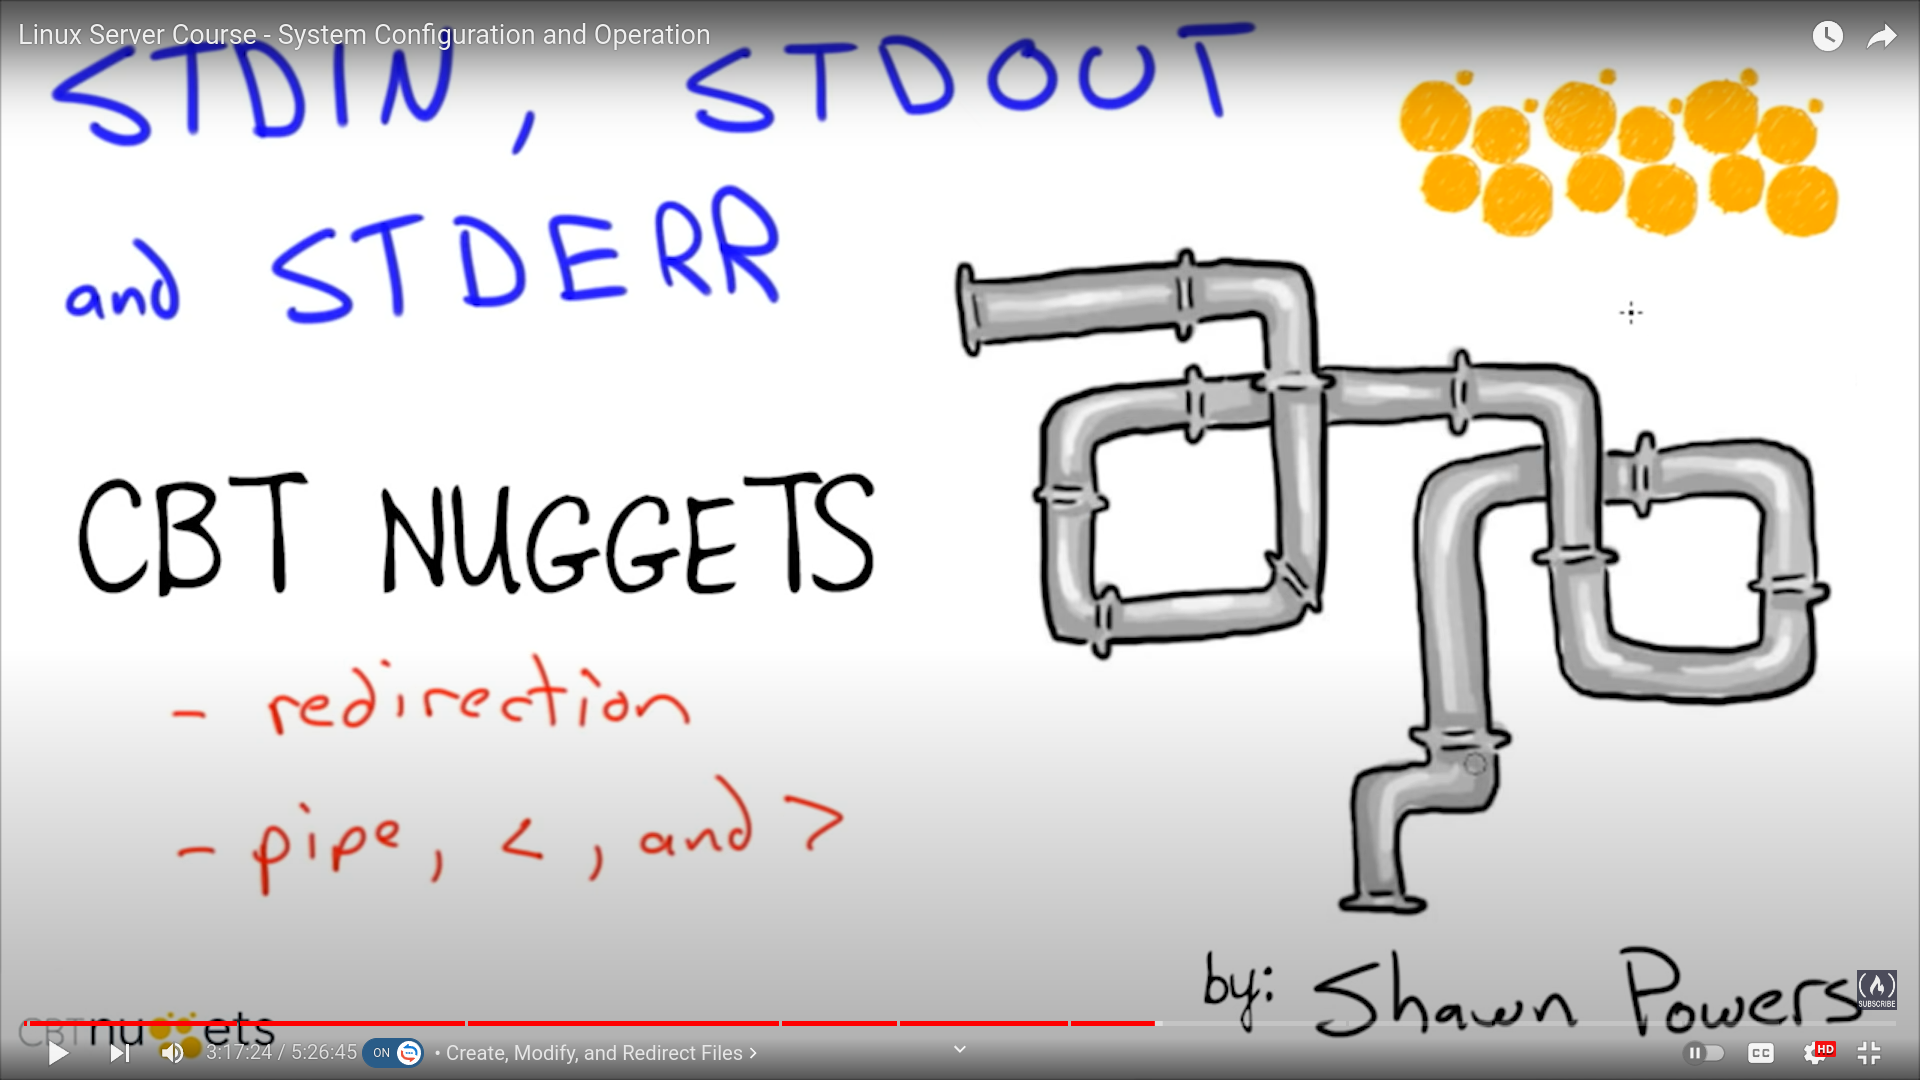 Linux Server Course - System Configuration and Operation
STDIN, STDOUT
and STDERR
CBT NUGGETS
- redirection
- pipe, <, and >
by: Shawn Powers
SUBSCRIBE
CBTnuggets
3:17:24 / 5:26:45 ON • Create, Modify, and Redirect Files > CC HD